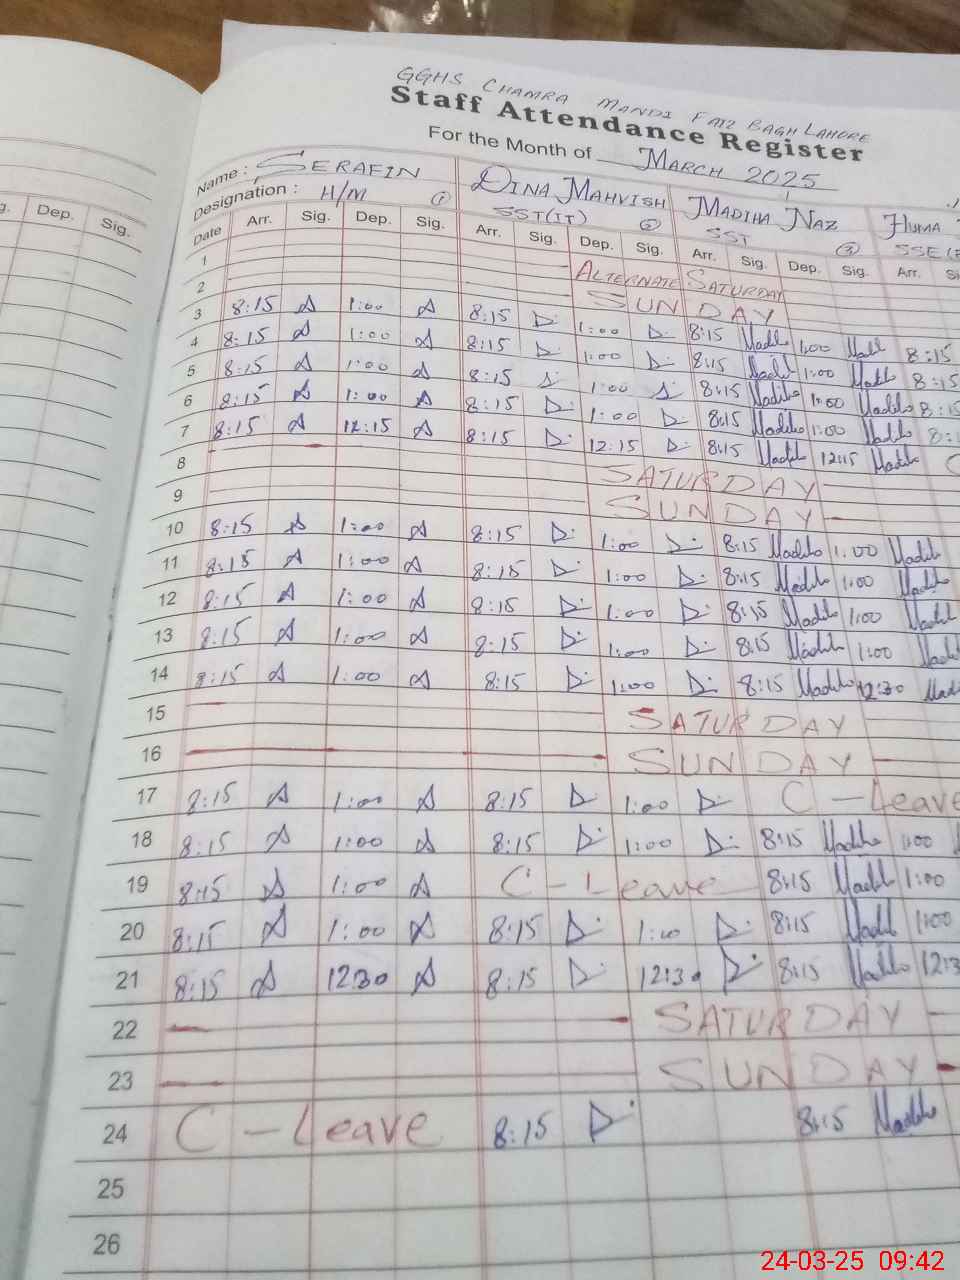 GGHS CHAMRA MANDI FAIZ BAGH LAHORE
Staff Attendance Register
For the Month of MARCH 2025
Name : SERAFIN DINA MAHVISH MADIHA NAZ HUMA
Designation : H/M ① SST(IT) ② SST ③ SSE
g. Dep. Sig.
Date Arr. Sig. Dep. Sig. Arr. Sig. Dep. Sig. Arr. Sig. Dep. Sig. Arr.
1 ALTERNATE SATURDAY
2 SUNDAY
3 8:15 A 1:00 A 8:15 D 1:00 D 8:15 Madiha 1:00 Madiha 8:15
4 8:15 A 1:00 A 8:15 D 1:00 D 8:15 Madiha 1:00 Madiha 8:15
5 8:15 A 1:00 A 8:15 1:00 8:15 Madiha 1:00 Madiha 8:15
6 8:15 A 1:00 A 8:15 D 1:00 D 8:15 Madiha 1:00 Madiha
7 8:15 A 12:15 A 8:15 D 12:15 D 8:15 Madiha 12:15 Madiha
8 SATURDAY
9 SUNDAY
10 8:15 A 1:00 A 8:15 D 1:00 D 8:15 Madiha 1:00 Madiha
11 8:15 A 1:00 A 8:15 D 1:00 D 8:15 Madiha 1:00 Madiha
12 8:15 A 1:00 A 8:15 D 1:00 D 8:15 Madiha 1:00 Madiha
13 8:15 A 1:00 A 8:15 D 1:00 D 8:15 Madiha 1:00
14 8:15 A 1:00 A 8:15 D 1:00 D 8:15 Madiha 12:30
15 SATURDAY
16 SUNDAY
17 8:15 A 1:00 A 8:15 D 1:00 D C-Leave
18 8:15 A 1:00 A 8:15 D 1:00 D 8:15 Madiha 1:00
19 8:15 A 1:00 A C-Leave 8:15 Madiha 1:00
20 8:15 A 1:00 A 8:15 D 1:00 D 8:15 Madiha 1:00
21 8:15 A 12:30 A 8:15 D 12:30 D 8:15 Madiha
22 SATURDAY
23 SUNDAY
24 C-Leave 8:15 D 8:15 Madiha
25
26
24-03-25 09:42